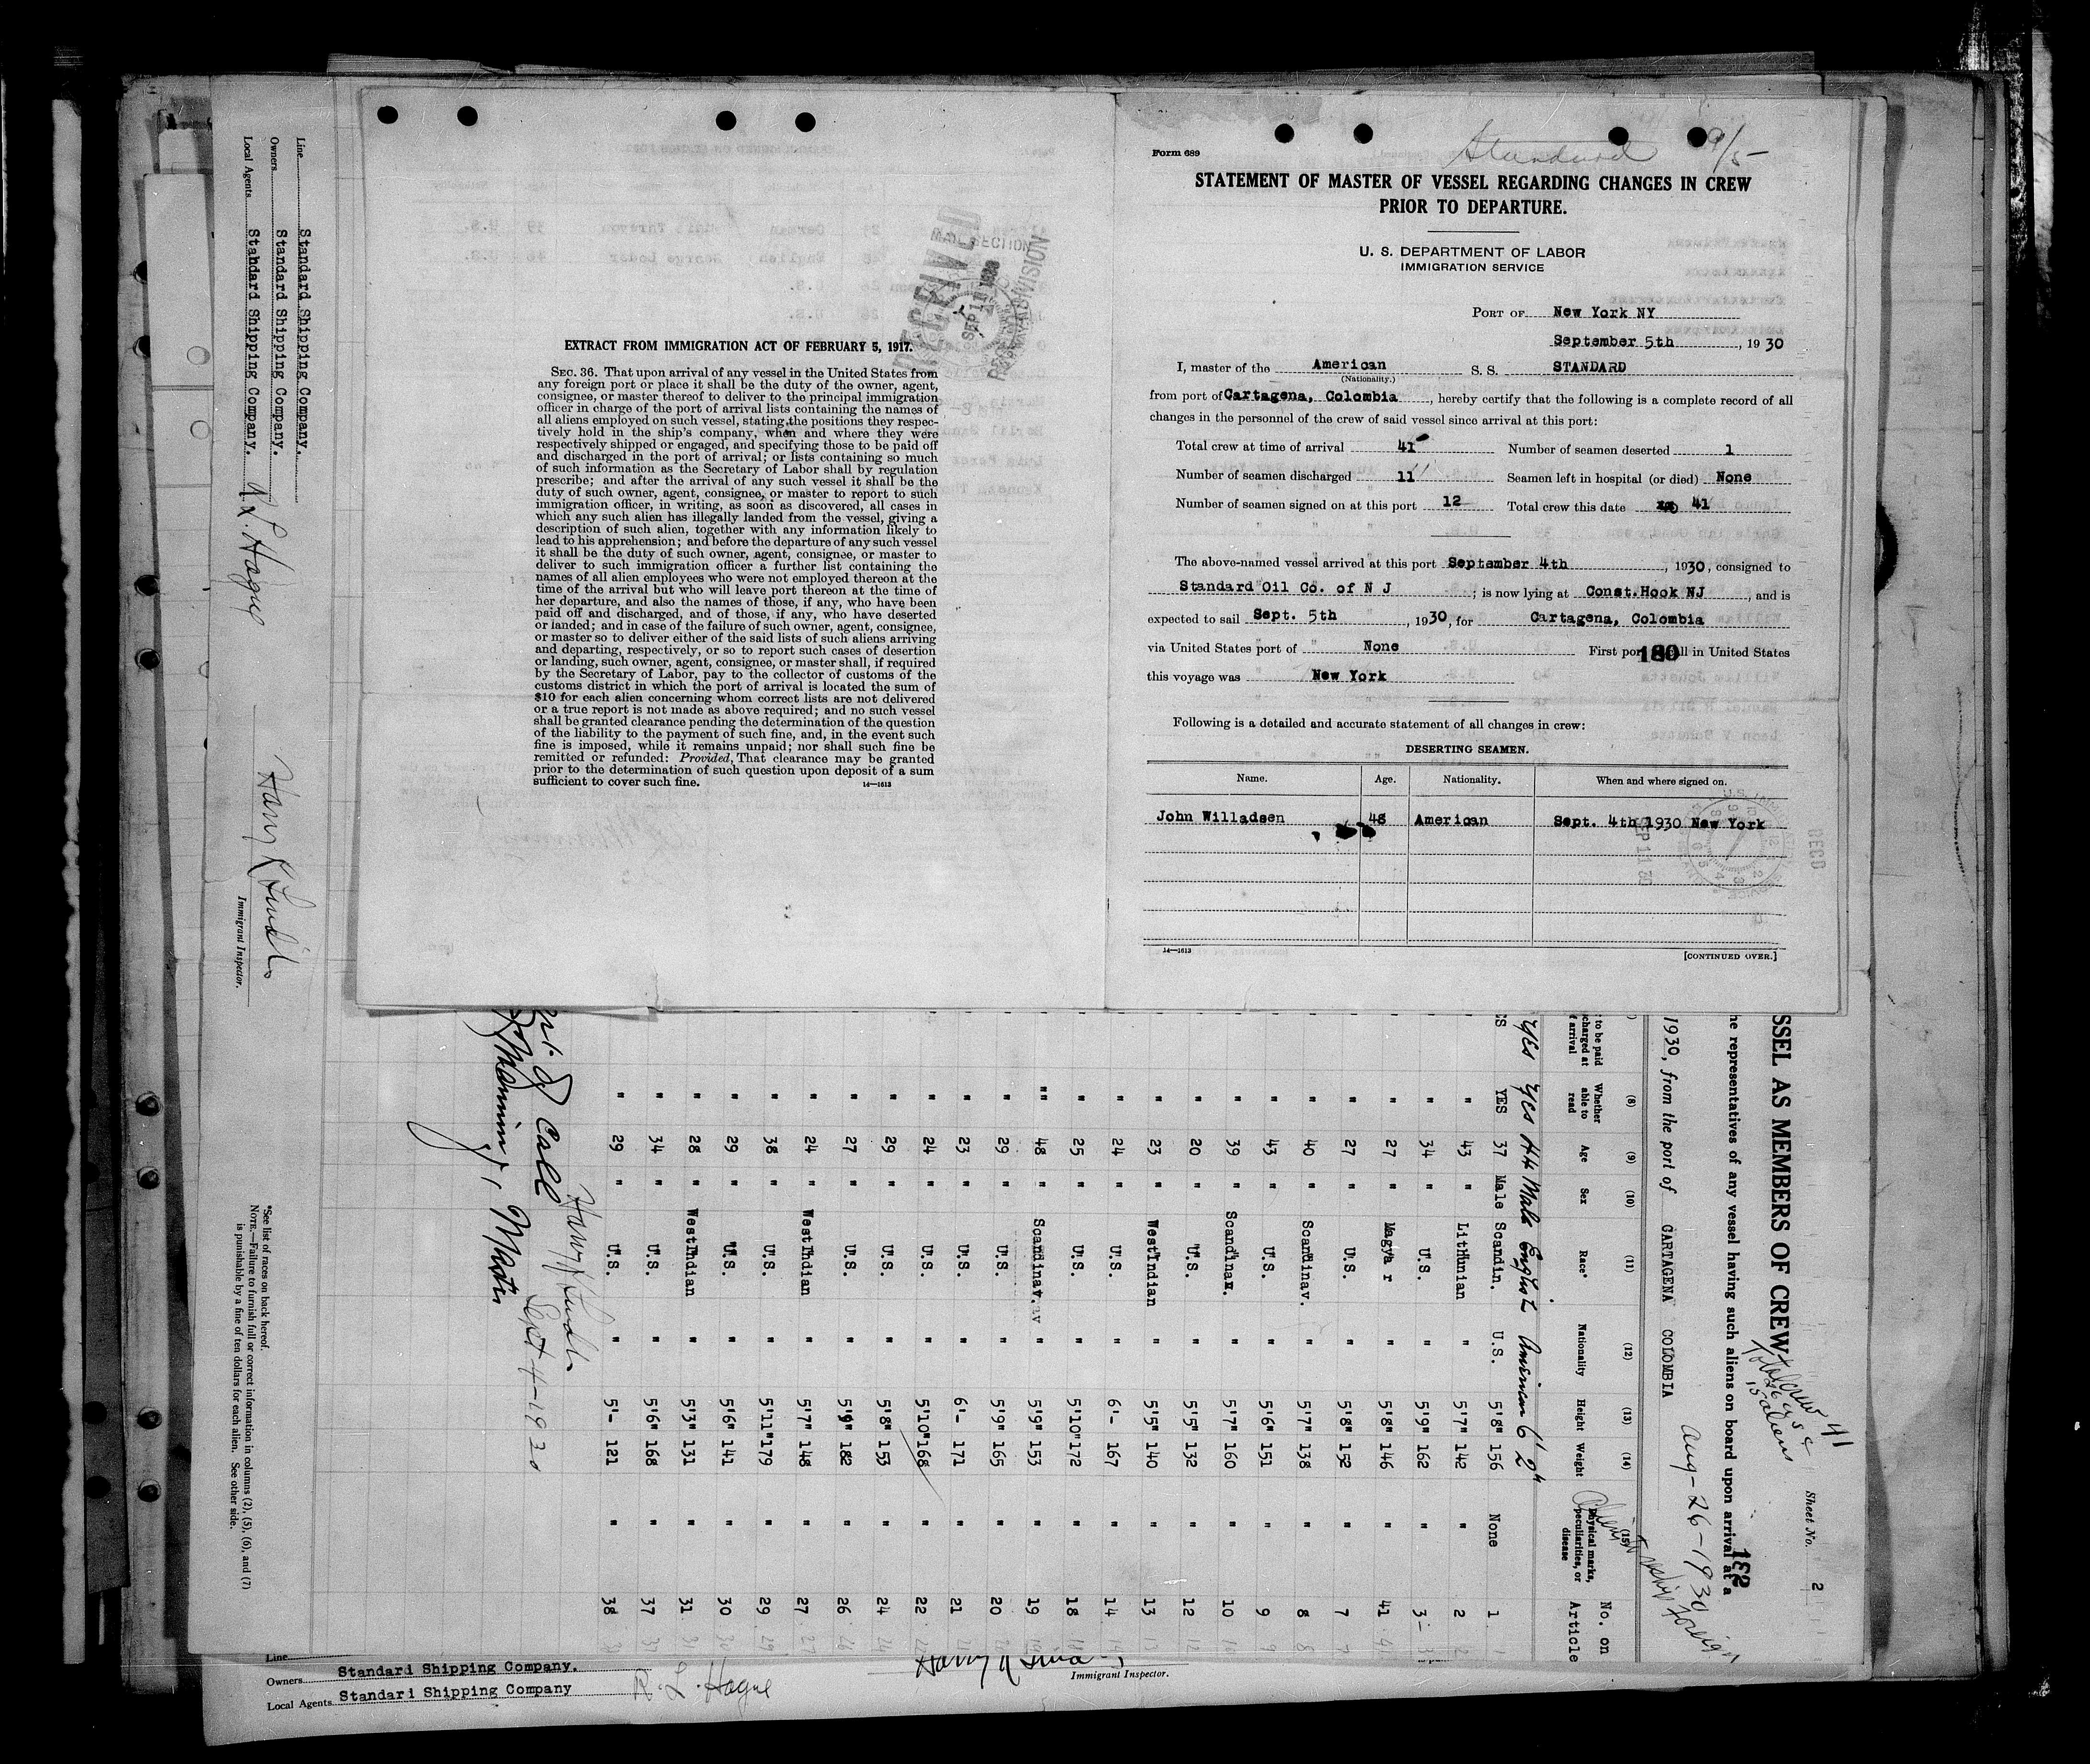 Form 689
Standard 9/5
STATEMENT OF MASTER OF VESSEL REGARDING CHANGES IN CREW
PRIOR TO DEPARTURE.
U. S. DEPARTMENT OF LABOR
IMMIGRATION SERVICE
PORT OF New York NY
September 5th, 1930
I, master of the American S. S. STANDARD
(Nationality.)
from port of Cartagena, Colombia, hereby certify that the following is a complete record of all
changes in the personnel of the crew of said vessel since arrival at this port:
Total crew at time of arrival 41 Number of seamen deserted 1
Number of seamen discharged 11 Seamen left in hospital (or died) None
Number of seamen signed on at this port 12 Total crew this date 41
The above-named vessel arrived at this port September 4th, 1930, consigned to
Standard Oil Co. of N J; is now lying at Const.Hook NJ, and is
expected to sail Sept. 5th, 1930, for Cartagena, Colombia
via United States port of None First port call in United States
180
this voyage was New York
Following is a detailed and accurate statement of all changes in crew:
DESERTING SEAMEN.
Name. Age. Nationality. When and where signed on.
John Willadsen 48 American Sept. 4th 1930 New York
14—1613
[CONTINUED OVER.]
RECEIVED
MAIL SECTION
EXTRACT FROM IMMIGRATION ACT OF FEBRUARY 5, 1917.
SEC. 36. That upon arrival of any vessel in the United States from
any foreign port or place it shall be the duty of the owner, agent,
consignee, or master thereof to deliver to the principal immigration
officer in charge of the port of arrival lists containing the names of
all aliens employed on such vessel, stating the positions they respec-
tively hold in the ship's company, when and where they were
respectively shipped or engaged, and specifying those to be paid off
and discharged in the port of arrival; or lists containing so much
of such information as the Secretary of Labor shall by regulation
prescribe; and after the arrival of any such vessel it shall be the
duty of such owner, agent, consignee, or master to report to such
immigration officer, in writing, as soon as discovered, all cases in
which any such alien has illegally landed from the vessel, giving a
description of such alien, together with any information likely to
lead to his apprehension; and before the departure of any such vessel
it shall be the duty of such owner, agent, consignee, or master to
deliver to such immigration officer a further list containing the
names of all alien employees who were not employed thereon at the
time of the arrival but who will leave port thereon at the time of
her departure, and also the names of those, if any, who have been
paid off and discharged, and of those, if any, who have deserted
or landed; and in case of the failure of such owner, agent, consignee,
or master so to deliver either of the said lists of such aliens arriving
and departing, respectively, or so to report such cases of desertion
or landing, such owner, agent, consignee, or master shall, if required
by the Secretary of Labor, pay to the collector of customs of the
customs district in which the port of arrival is located the sum of
$10 for each alien concerning whom correct lists are not delivered
or a true report is not made as above required; and no such vessel
shall be granted clearance pending the determination of the question
of the liability to the payment of such fine, and, in the event such
fine is imposed, while it remains unpaid; nor shall such fine be
remitted or refunded: Provided, That clearance may be granted
prior to the determination of such question upon deposit of a sum
sufficient to cover such fine.
14—1613
Sheet No. 2
SSEL AS MEMBERS OF CREW
Total crew 41
26 US c
15 aliens
182
he representatives of any vessel having such aliens on board upon arrival at a
1930, from the port of CARTAGENA COLOMBIA Aug-26-1930
(8) (9) (10) (11) (12) (13) (14) (15)
to be paid charged at arrival Whether able to read Age Sex Race* Nationality Height Weight Physical marks, peculiarities, or disease No. on Article
yes yes 44 Male English American 6'2"
ES YES 37 Male Scandin. U.S. 5'8" 156 None 1
" 43 " Lithunian " 5'7" 142 " 2
" 34 " U.S. " 5'9" 162 " 3
" 27 " Magyar " 5'8" 146 " 41
" 27 " U.S. " 5'8" 152 " 7
" 40 " Scandinav. " 5'7" 138 " 8
" 43 " U.S. " 5'6" 151 " 9
" 39 " Scandinav. " 5'7" 160 " 10
" 20 " U.S. " 5'5" 132 " 12
" 23 " WestIndian " 5'5" 140 " 13
" 24 " U.S. " 6'- 167 " 14
" 25 " U.S. " 5'10" 172 " 18
"" 48 " Scandinav. " 5'9" 153 " 19
" 29 " U.S. " 5'9" 165 " 20
" 23 " U.S. " 6'- 171 " 21
" 24 " U.S. " 5'10" 168 " 22
" 29 " U.S. " 5'8" 153 " 24
" 27 " U.S. " 5'9" 182 " 26
" 24 " WestIndian " 5'7" 148 " 27
" 38 " U.S. " 5'11" 179 " 29
" 29 " U.S. " 5'6" 141 " 30
" 28 " WestIndian " 5'3" 131 " 31
" 34 " U.S. " 5'6" 168 " 37
" 29 " U.S. " 5'- 121 " 38
Sept 4-1930
Line Standard Shipping Company.
Owners Standard Shipping Company.
Local Agents Standard Shipping Company. R.L. Hague
Immigrant Inspector.
*See list of races on back hereof.
NOTE.—Failure to furnish full or correct information in columns (2), (5), (6), and (7)
is punishable by a fine of ten dollars for each alien. See other side.
Line
Owners Standard Shipping Company.
Local Agents Standard Shipping Company R. L. Hague
Immigrant Inspector.